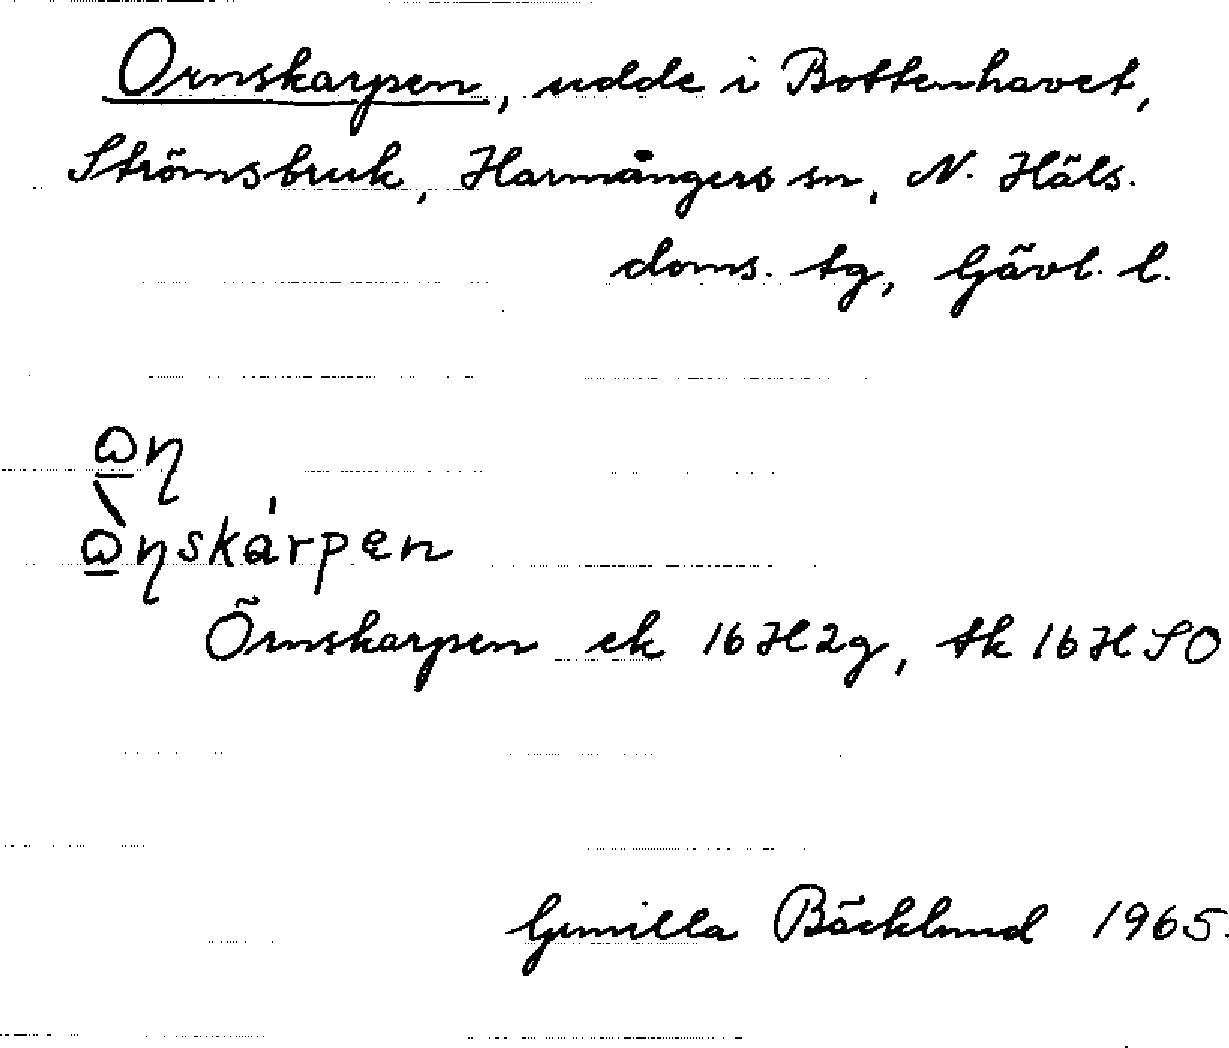 Ornskarpen, udde i Bottenhavet,
Strömsbruk, Harmångers sn, N. Häls.
doms. tg, Gävl. l.
Örnskarpen ek 16H2g, tk 16H SO
Gunilla Bäcklund 1965.